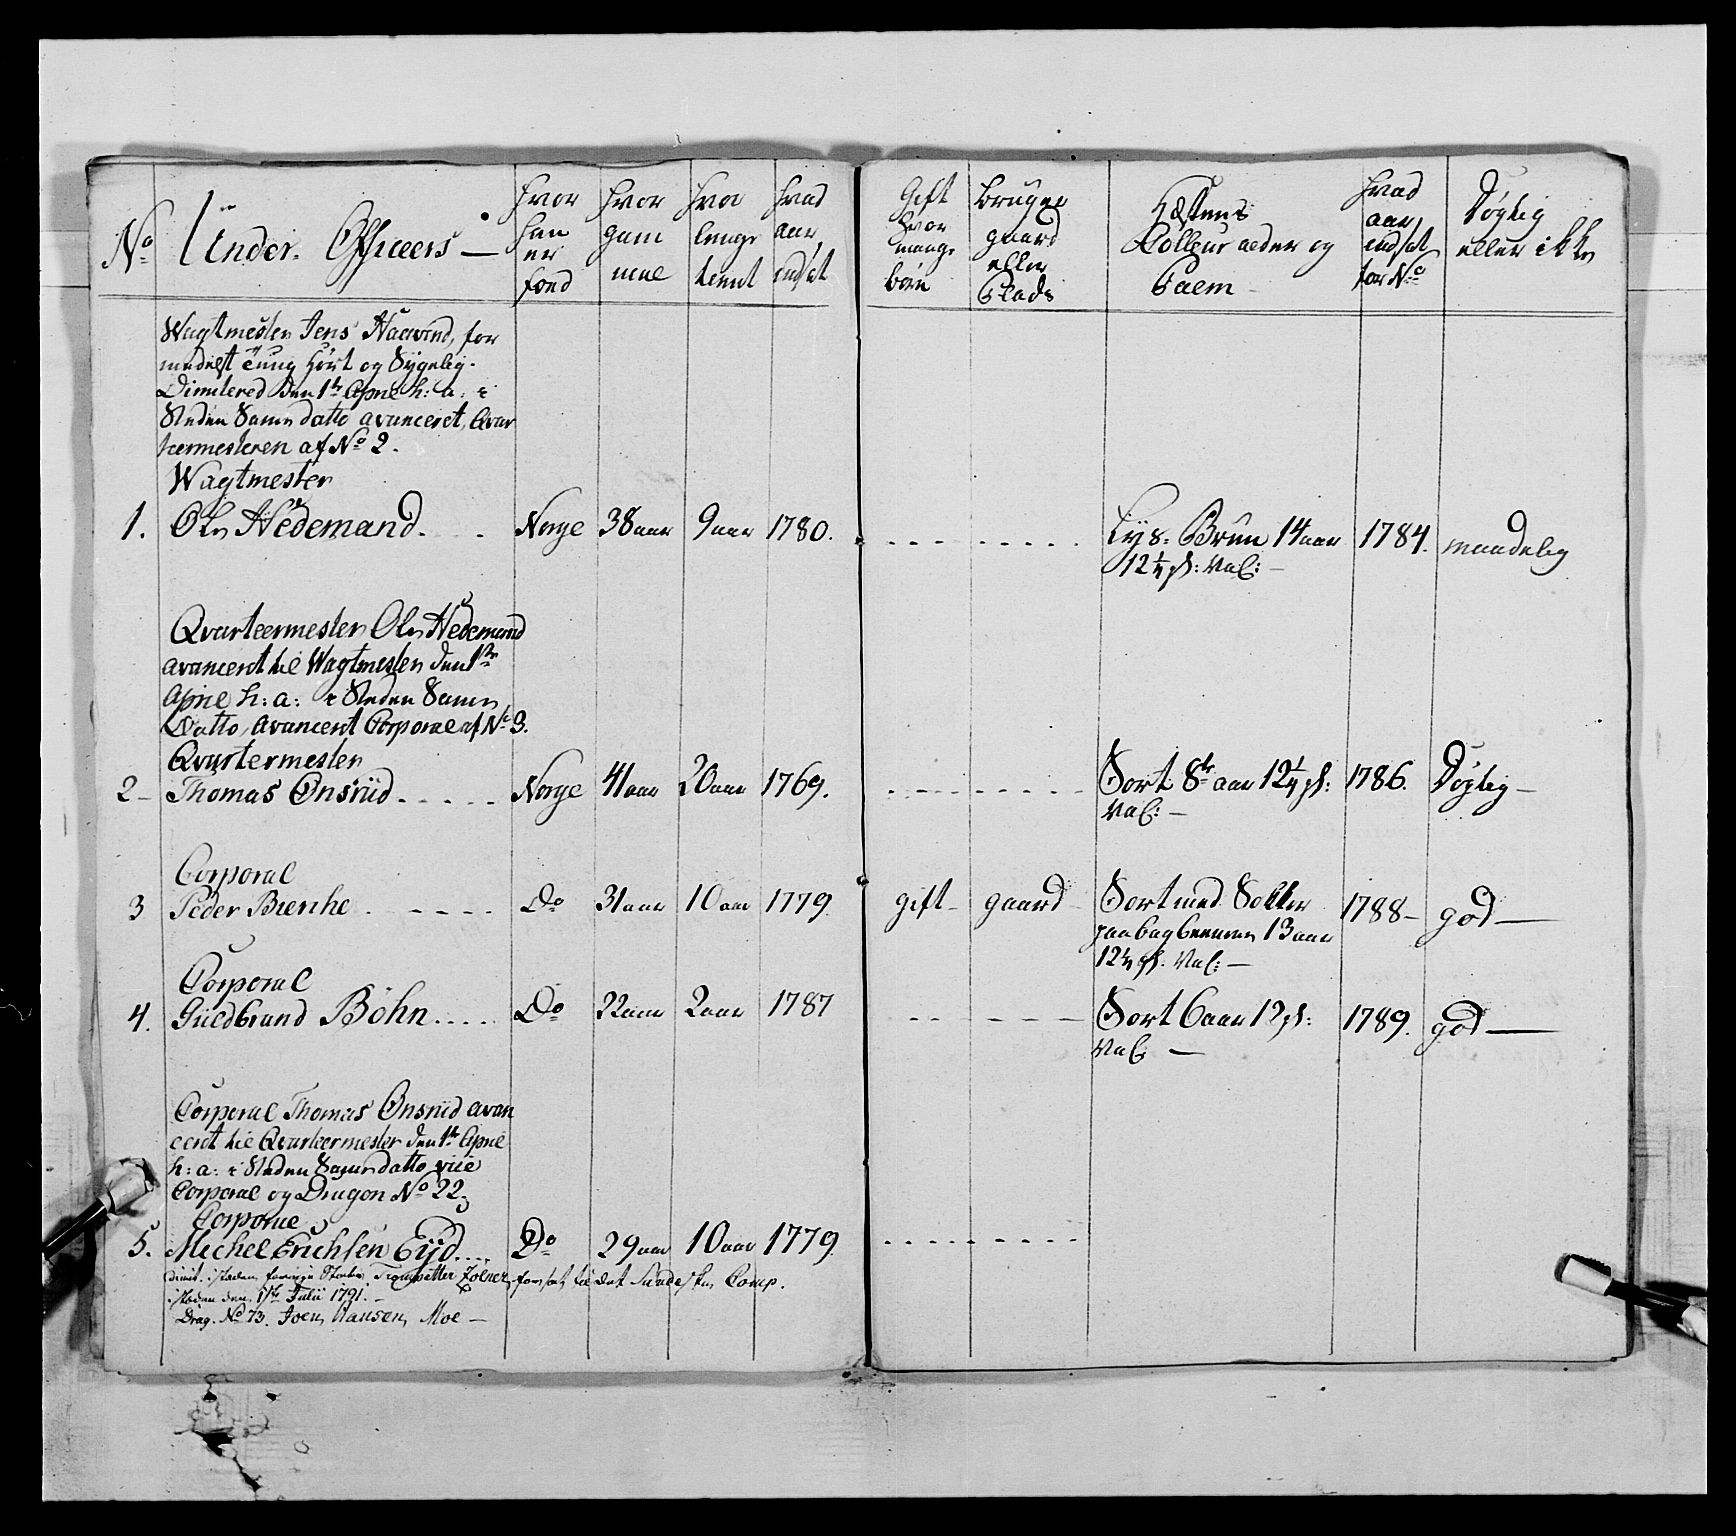 No
Under. Officeers —
hvor
han
er
fød
hvor
gam
mel
hvor
lenge
tient
hvad
aar
indsat
Gift
hvor
mange
børn
bruger
gaard
eller
Plads
Hæstens
Colleur alder og
Palm
hvad
aar
indsat
for No
Døgtig
eller ikke
Wagtmester Jens Haavind, for
medelst tung hørt og Sygelig.
Dimitered Den 1te April h: a: i
Steden Samme datto avanceret, Qvar
teermesteren af No 2.
Wagtmester
1. Ole Hedemand. Norge 38 aar 9 aar 1780. Lys- Brun 14 aar 1784. maadelig
12 1/4 qt: Val: —
Qvarteermester Ole Hedemand
avancerit til Wagtmester den 1te
April h: a: i Steden Samme
Datto, avancerit Corporal af No 3.
Qvartermester
2 — Thomas Onsrud Norge 41 aar 20 aar 1769. Sort 8te aar 12 1/4 qt: 1786. Døgtig —
Val: —
Corporal
3 Peder Bienke Do 31 aar 10 aar 1779. gift — gaard — Sort med Sokker 1788 — god —
paa bag beenene 13 aar
12 1/4 qt. Val: —
Corporal
4. Gudbrand Böhn Do 22 aar 2 aar 1787 Sort 6 aar 12 qt: 1789. god —
Val: —
Corporal Thomas Onsrud avan
cerit til Qvarteermester den 1te April
h: a: i Steden Samme datto
Corporal og Dragon No 22
Corporal
5. Michel Erichsen Eijd Do 29 aar 10 aar 1779.
dimit. isteden forrige Trompetter Zölner forsat til det Comp.
isteden den 1te Julii 1791. —
Drag. No 73. Joen Hansen Moe —